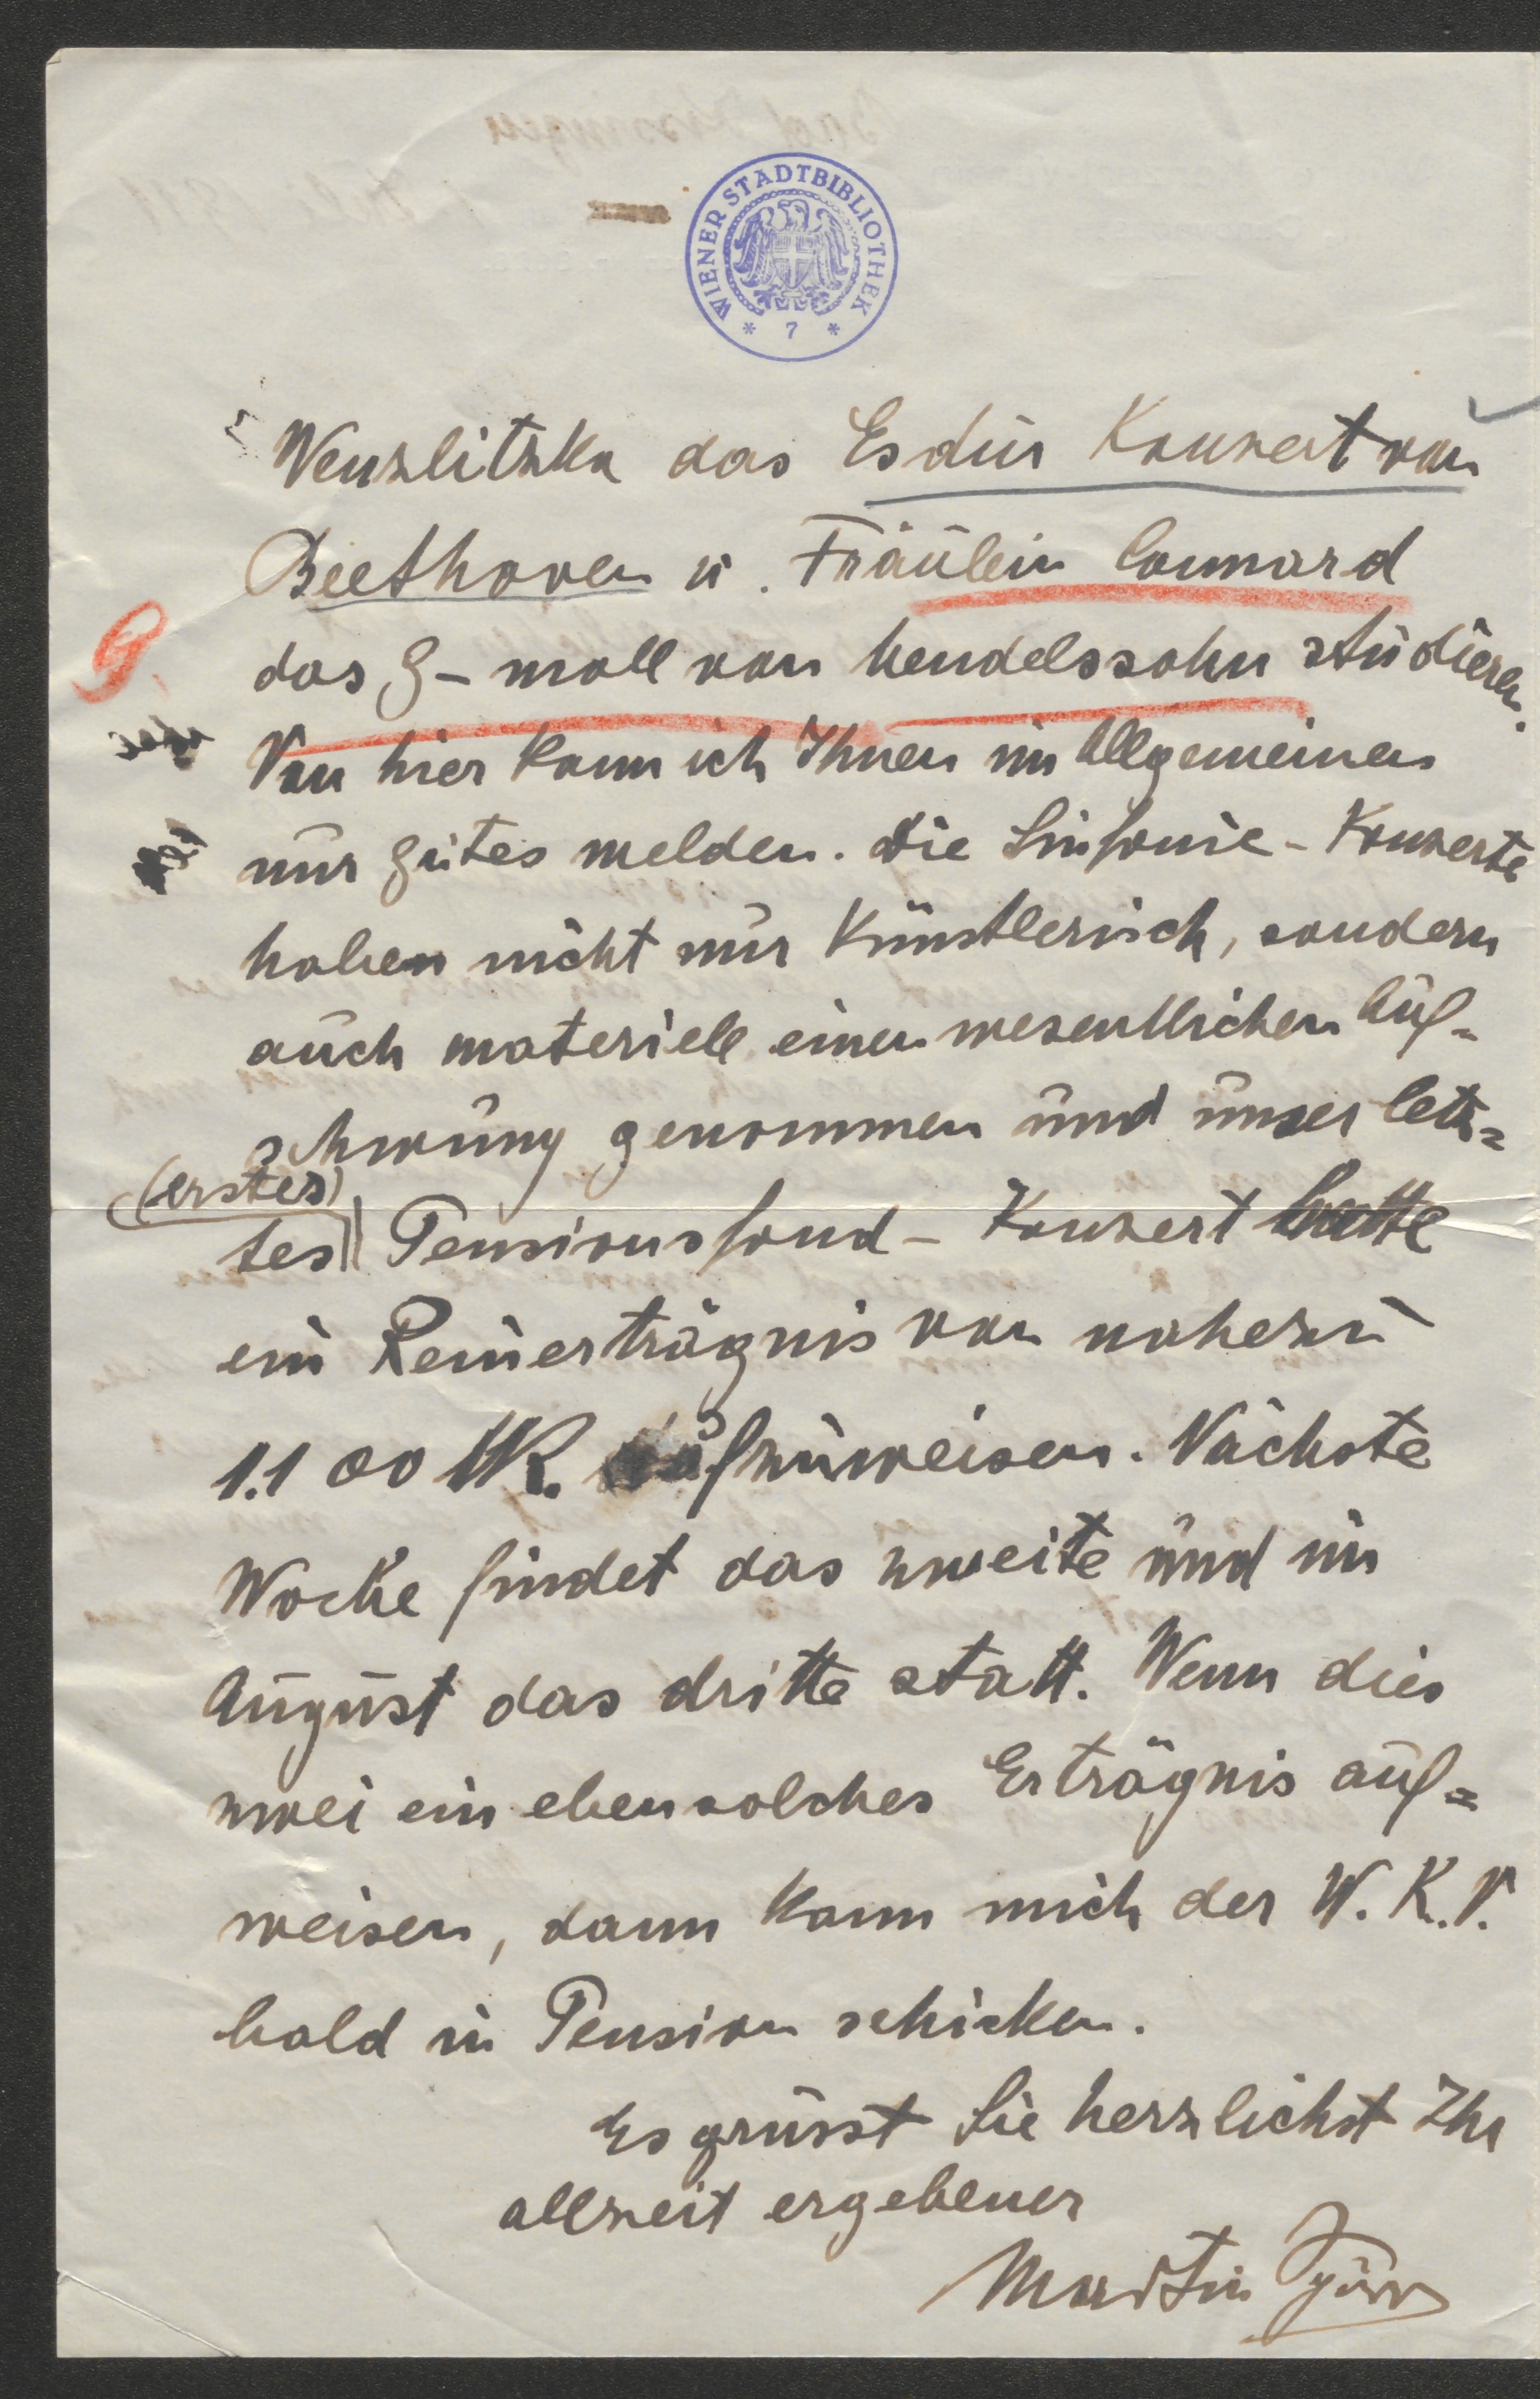 WIENER STADTBIBLIOTHEK
* 7 *
Wenzlitzka das Esdur Konzert von
Beethoven u. Fräulein Connard
das G-moll von Mendelssohn studieren.
Von hier kann ich Ihnen im Allgemeinen
nur gutes melden. Die Sinfonie-Konzerte
haben nicht nur Künstlerisch, sondern
auch materiell einen wesentlichen Auf=
schwung genommen und unser letz=
(erstes)
tes Pensionsfond-Konzert hatte
ein Reinerträgnis von nahezu
1.100 MK. aufzuweisen. Nächste
Woche findet das zweite und im
August das dritte statt. Wenn dies
zwei ein ebensolches Erträgnis auf=
weisen, dann kann mich der W. K. V.
bald in Pension schicken.
Es grüsst Sie herzlichst Ihr
allzeit ergebener
Martin Spörr